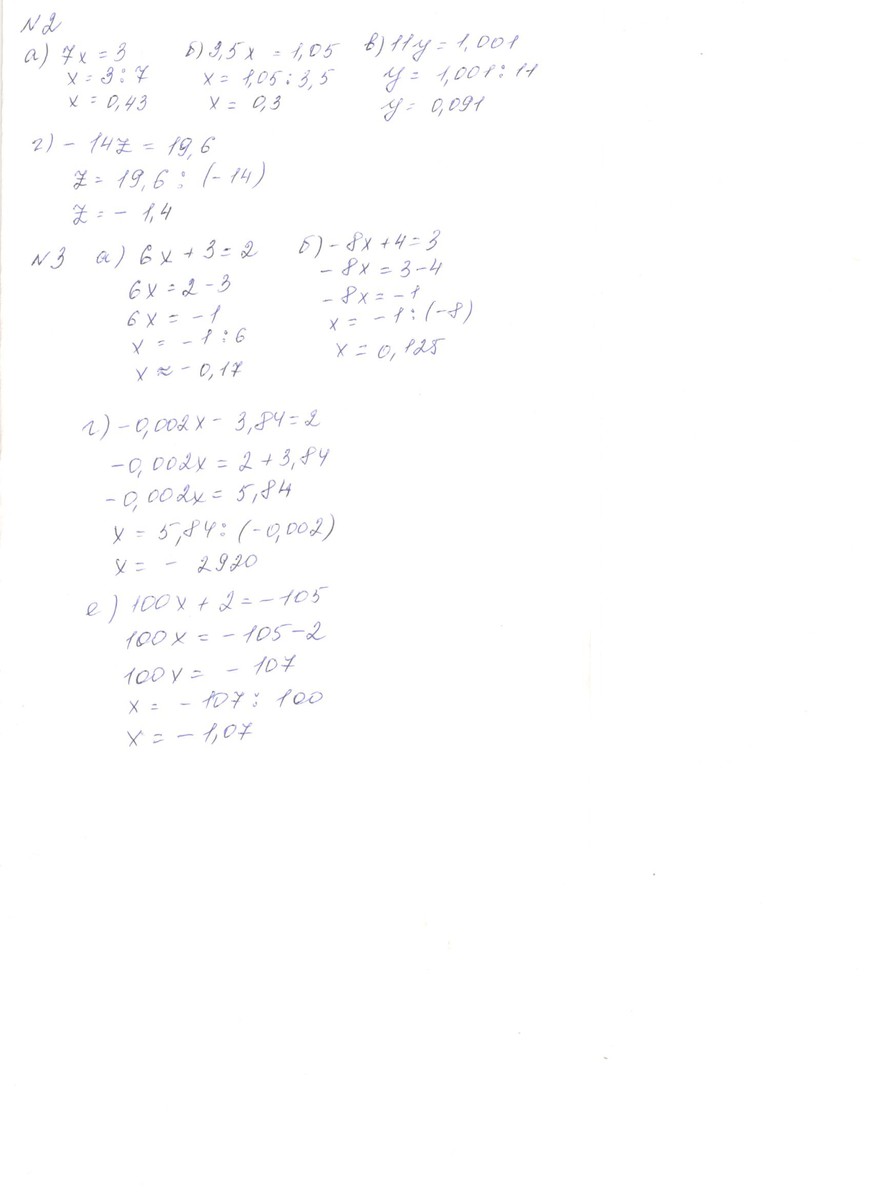 №2
а) 7x = 3 б) 3,5x = 1,05 в) 11y = 1,001
x = 3 : 7 x = 1,05 : 3,5 y = 1,001 : 11
x = 0,43 x = 0,3 y = 0,091
г) - 14z = 19,6
z = 19,6 : (-14)
z = - 1,4
№3 а) 6x + 3 = 2 б) - 8x + 4 = 3
6x = 2 - 3 - 8x = 3 - 4
6x = -1 - 8x = -1
x = - 1 : 6 x = -1 : (-8)
x ≈ - 0,17 x = 0,125
г) -0,002x - 3,84 = 2
-0,002x = 2 + 3,84
-0,002x = 5,84
x = 5,84 : (-0,002)
x = - 2920
е) 100x + 2 = - 105
100x = - 105 - 2
100x = - 107
x = - 107 : 100
x = - 1,07